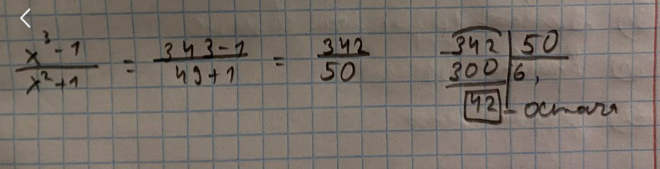 x³-1 / x²+1 = 343-1 / 49+1 = 342 / 50
342 | 50
300 | 6,
42 - остача